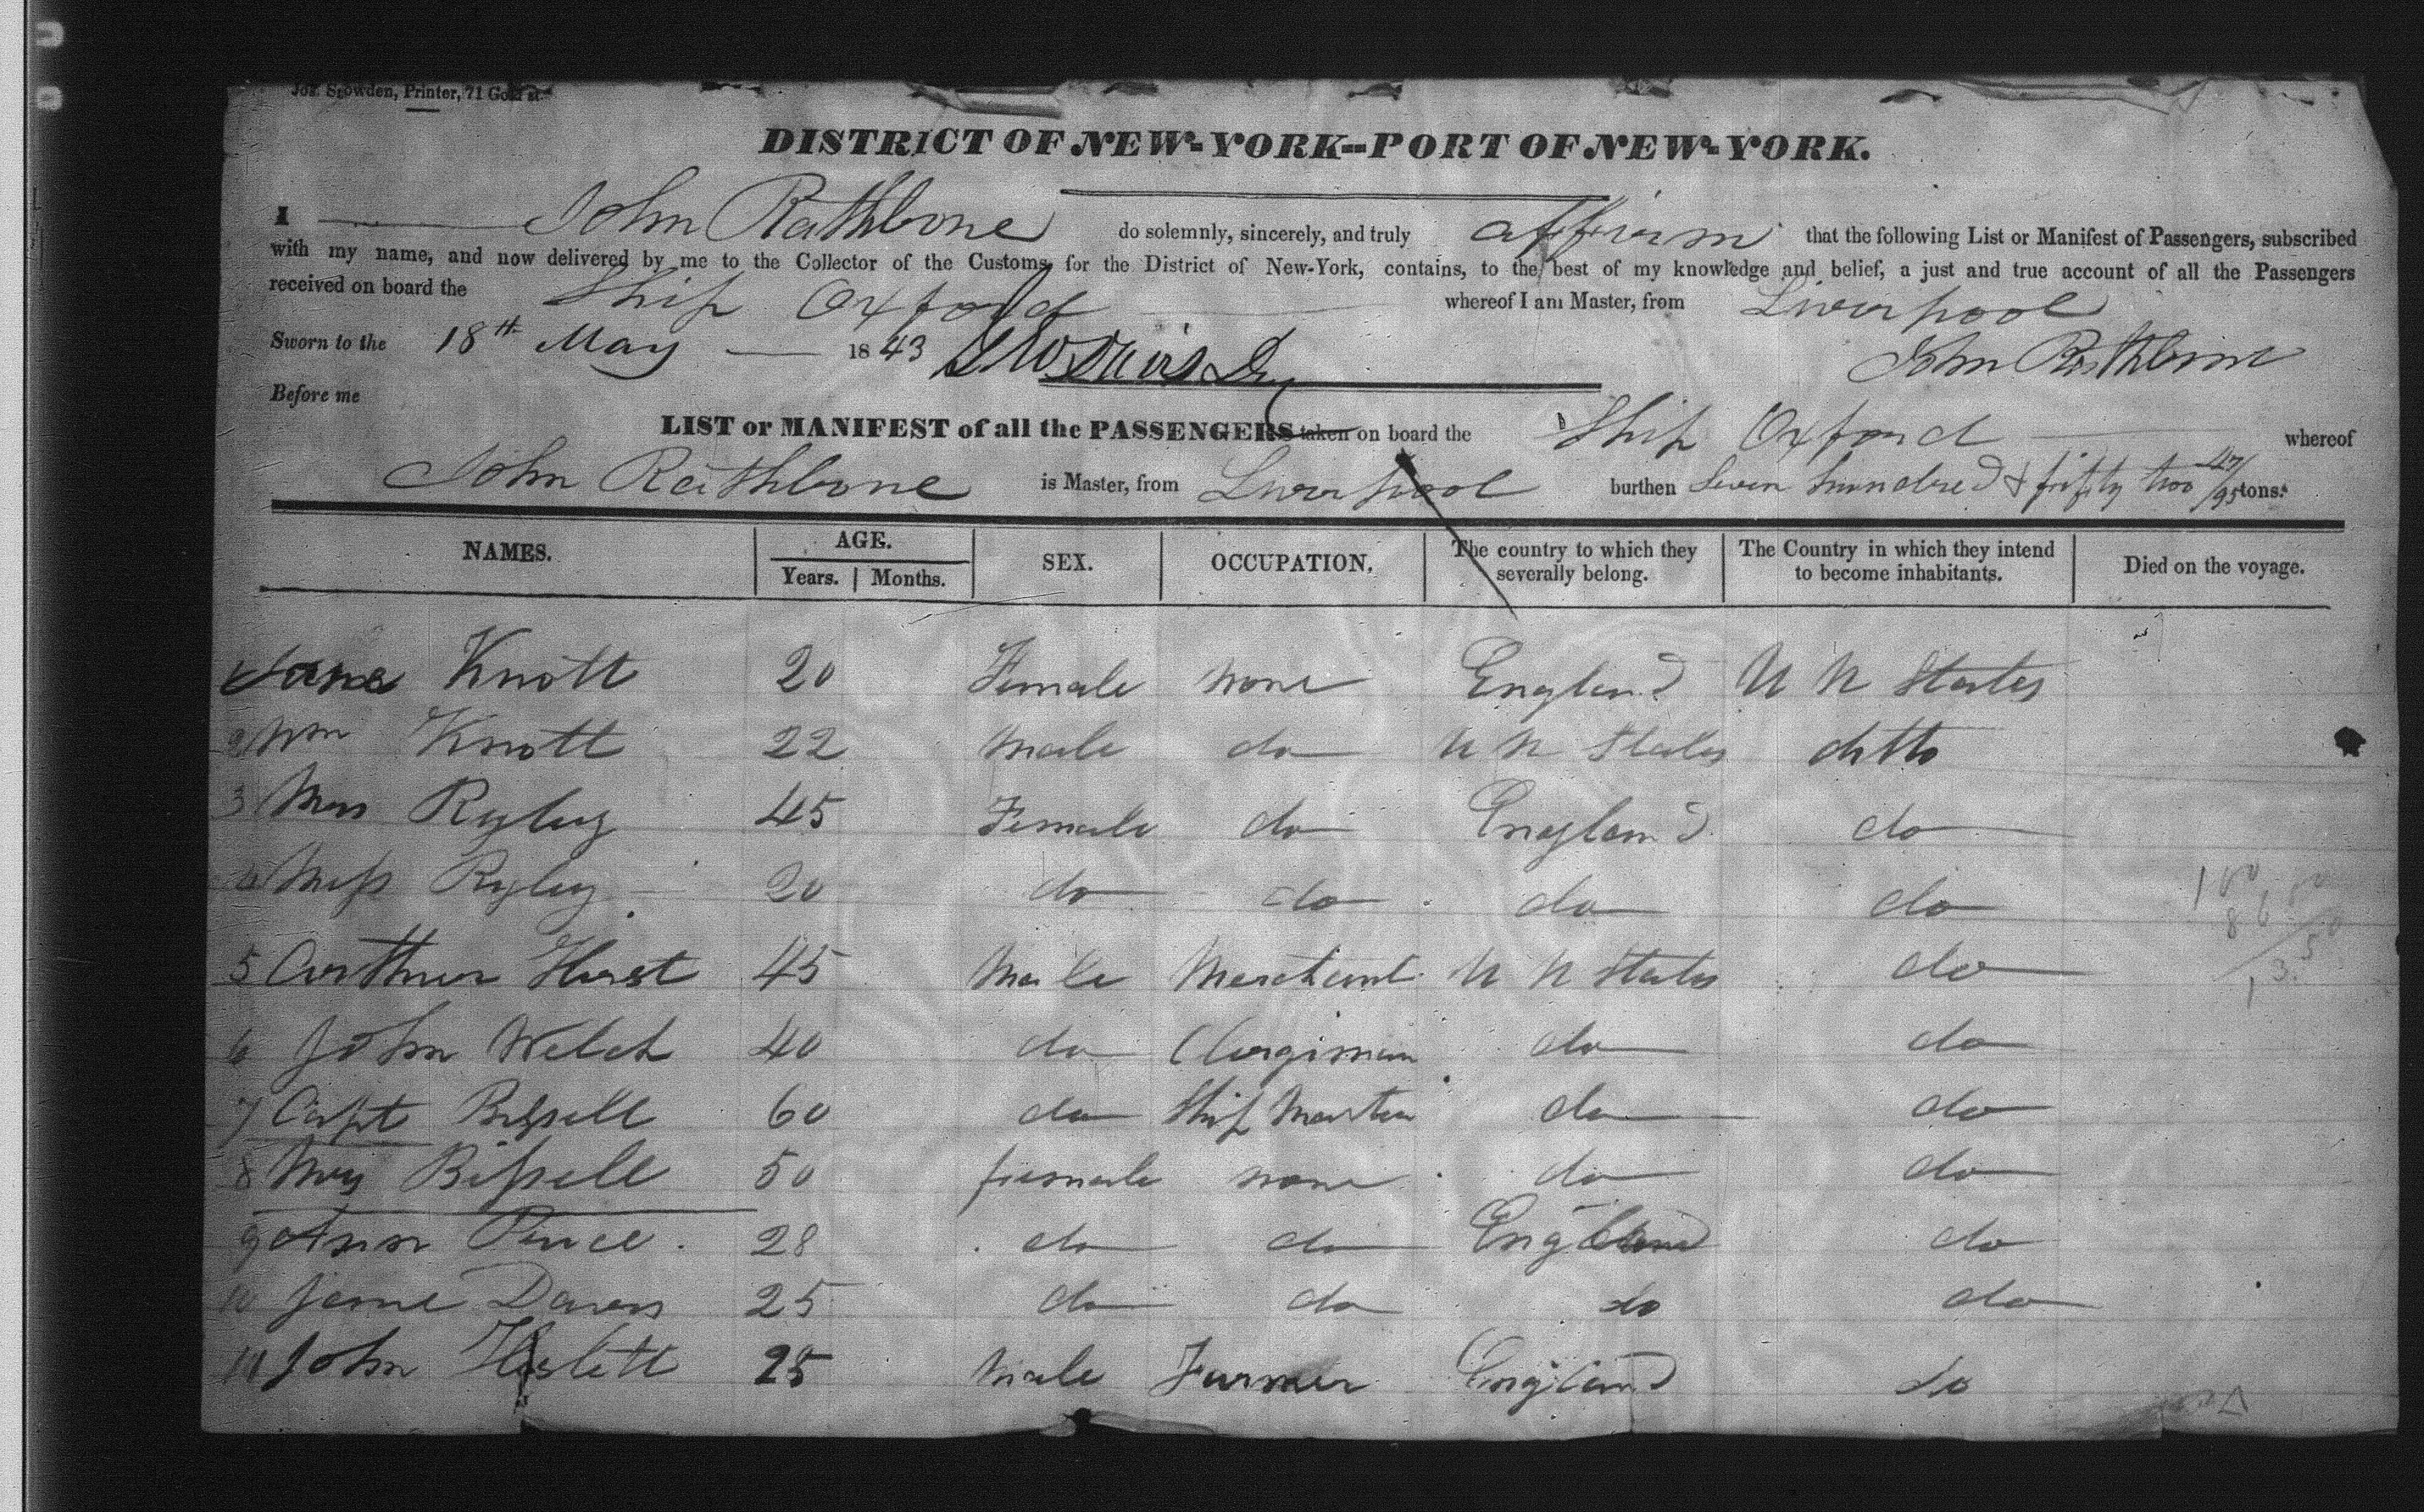 Jos. Snowden, Printer, 71 Gold st.
DISTRICT OF NEW-YORK--PORT OF NEW-YORK.
I John Rathbone do solemnly, sincerely, and truly affirm that the following List or Manifest of Passengers, subscribed
with my name, and now delivered by me to the Collector of the Customs, for the District of New-York, contains, to the best of my knowledge and belief, a just and true account of all the Passengers
received on board the Ship Oxford whereof I am Master, from Liverpool
Sworn to the 18th May 1843 John Rathbone
Before me
LIST or MANIFEST of all the PASSENGERS taken on board the Ship Oxford whereof
John Rathbone is Master, from Liverpool burthen Seven hundred & fifty two 47/95 tons.
NAMES. AGE. Years. Months. SEX. OCCUPATION. The country to which they severally belong. The Country in which they intend to become inhabitants. Died on the voyage.
1 Jane Knott 20 Female none England U N States
2 Wm Knott 22 Male do U N States ditto
3 Mrs Ryley 45 Female do England do
4 Miss Ryley 20 do do do do
5 Arthur Hurst 45 Male Merchant U N States do
6 John Welch 40 do Clergiman do do
7 Capt Bissell 60 do Ship Master do do
8 Mrs Bissell 50 female none do do
9 Ann 28 do do England do
10 Jane 25 do do do do
11 John 25 Male Farmer England do